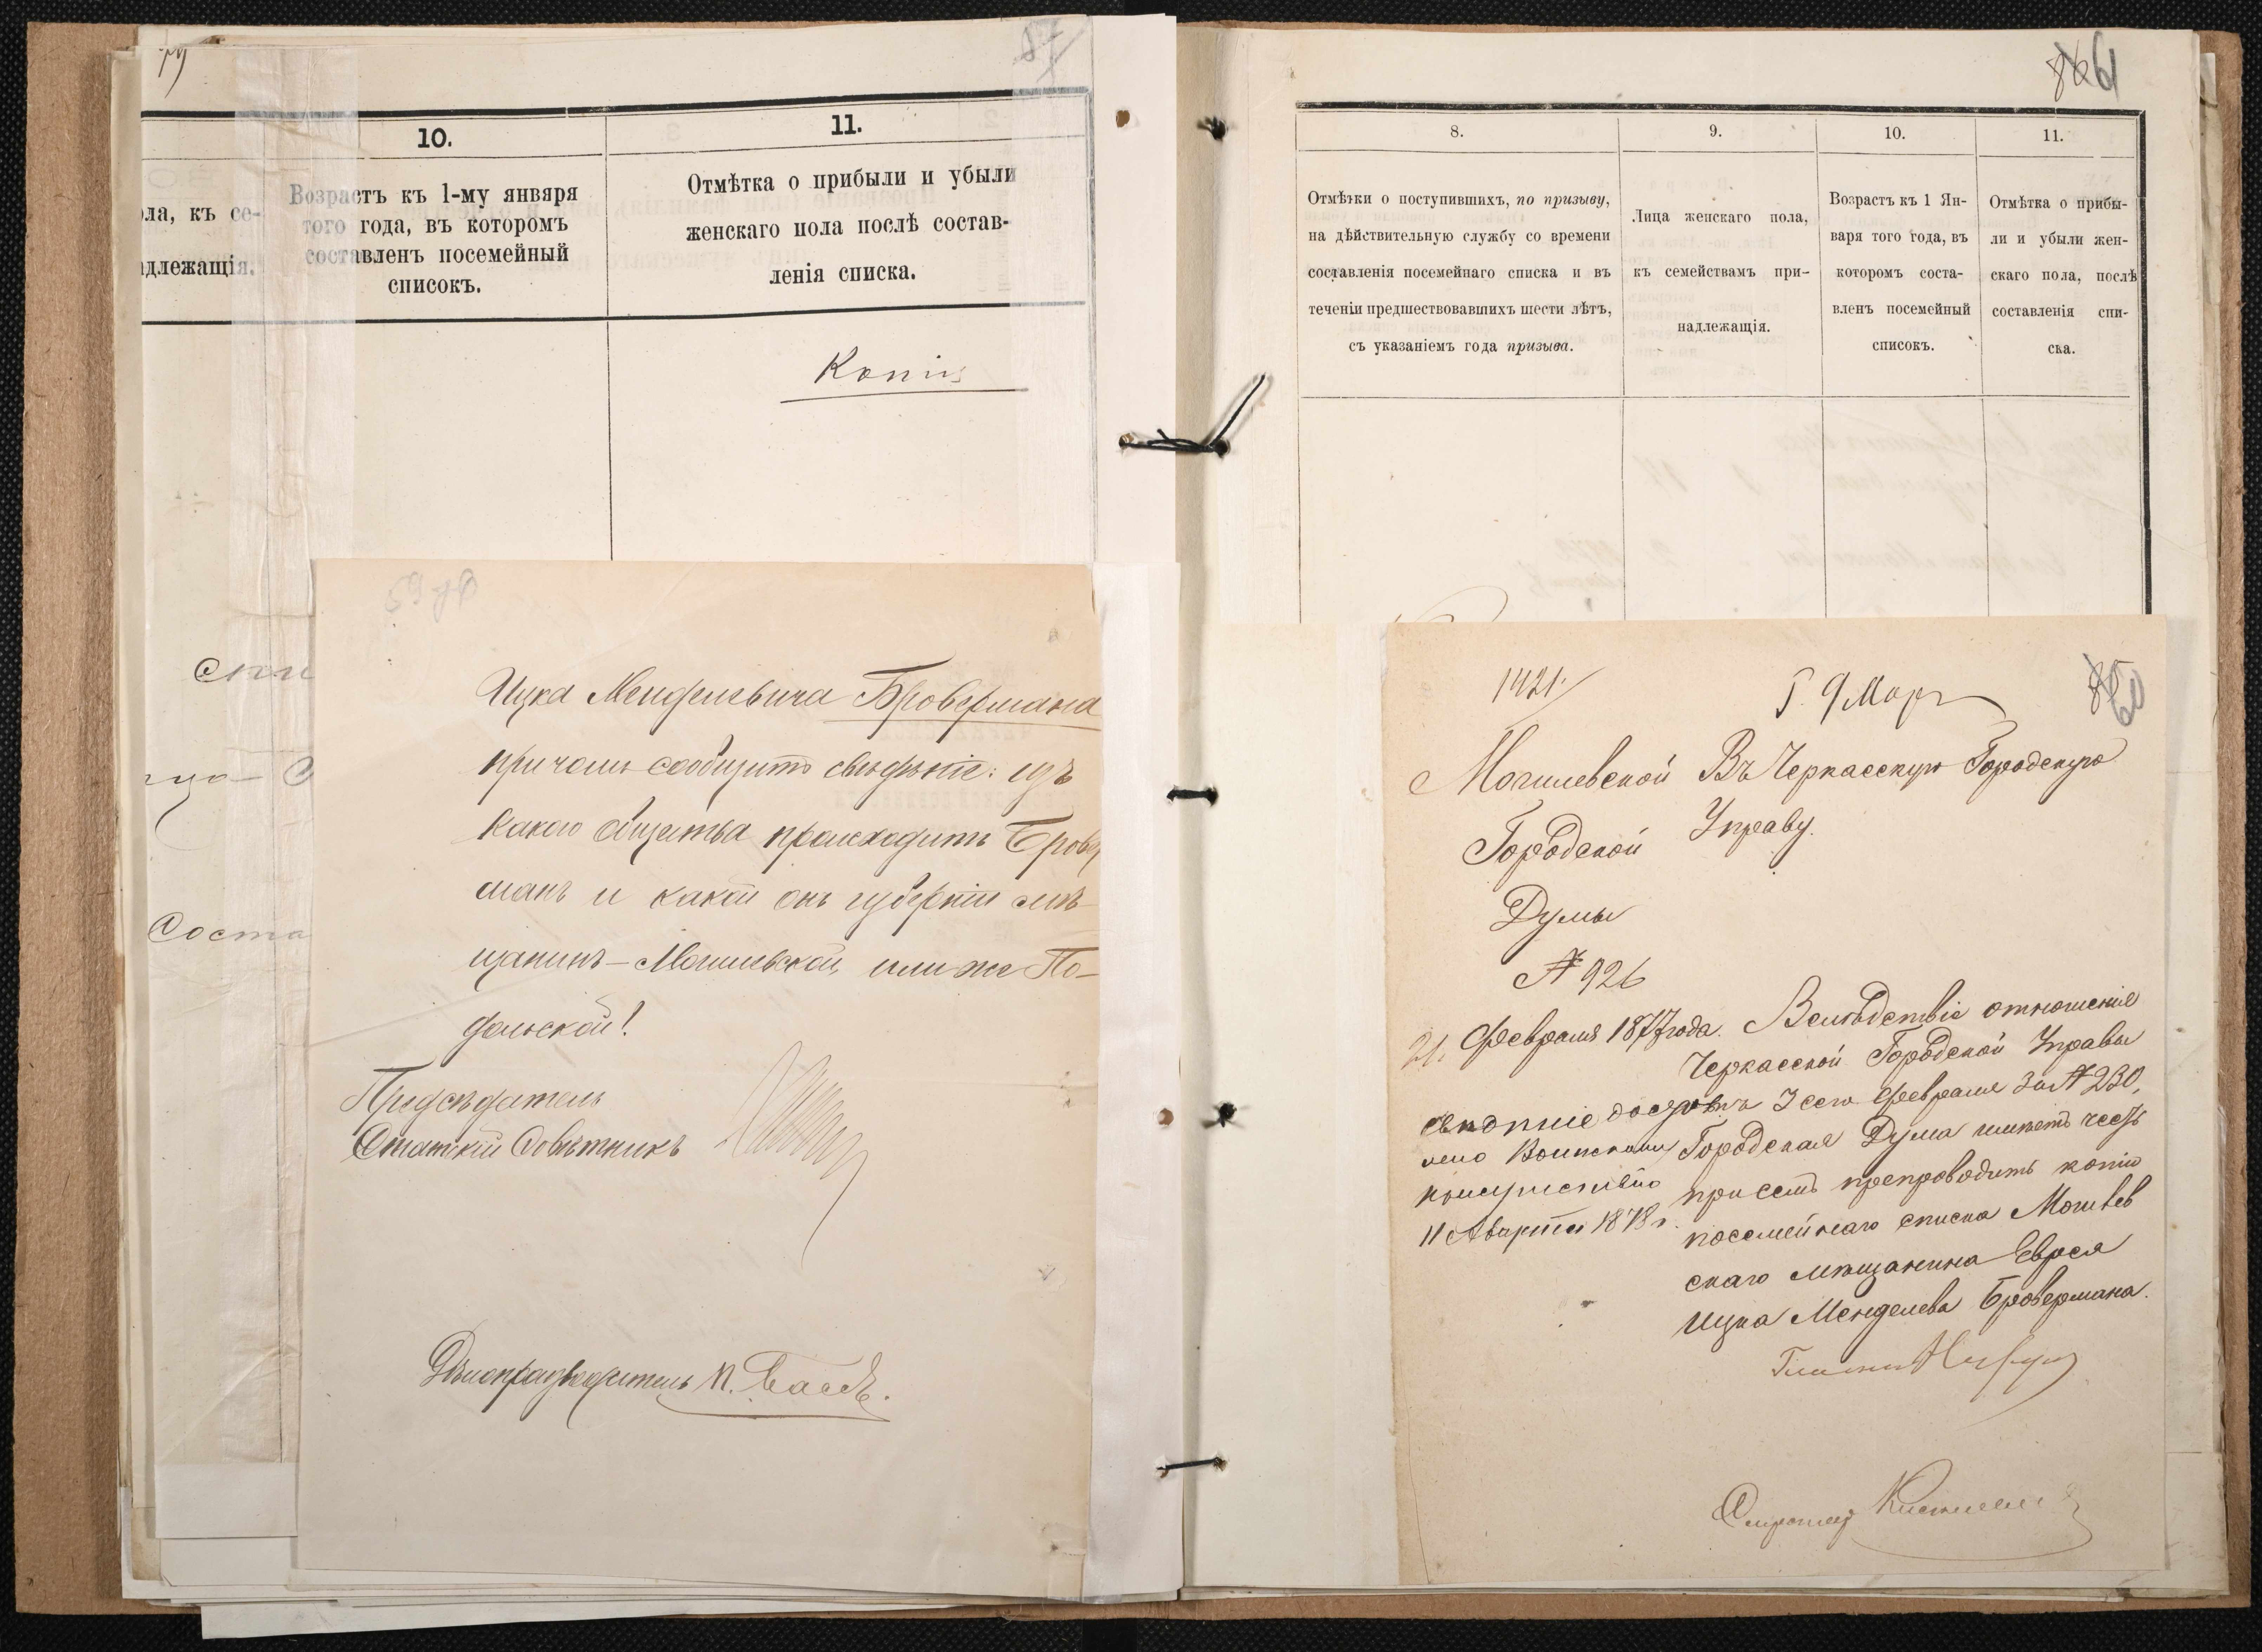 10.
11.
ола, къ се-
адлежащія.
Возрастъ къ 1-му января
того года, въ которомъ
составленъ посемейный
списокъ.
Отмѣтка о прибыли и убыли
женскаго пола послѣ состав-
ленія списка.
Копія
спи
Соста
Ицка Менделевича Бровермана
причемъ сообщить свѣдѣніе: изъ
какого общества происходитъ Бровер
манъ и какой онъ губерніи мѣ-
щанинъ – Могилевской, или же По-
дольской!
Предсѣдатель
Статскій Совѣтникъ
Дѣлопроизводитель
61
8.
9.
10.
11.
Отмѣтки о поступившихъ, по призыву,
на дѣйствительную службу со времени
составленія посемейнаго списка и въ
теченіи предшествовавшихъ шести лѣтъ,
съ указаніемъ года призыва.
Лица женскаго пола,
къ семействамъ при-
надлежащія.
Возрастъ къ 1 Ян-
варя того года, въ
которомъ соста-
вленъ посемейный
списокъ.
Отмѣтка о прибы-
ли и убыли жен-
скаго пола, послѣ
составленія спи-
ска.
1421.
9 Мар
60
Могилевской
Городской
Думы
№ 926
21. Февраля 1877 года.
Въ Черкасскую Городскую
Управу.
Вслѣдствіе отношенія
Черкасской Городской Управы
3 сего Февраля за № 230,
Городская Дума имѣетъ честь
при семъ препроводить копію
посемейнаго списка Могилев
скаго мѣщанина Еврея
Ицка Менделева Бровермана.
11 Августа 1878 г.
Секретарь